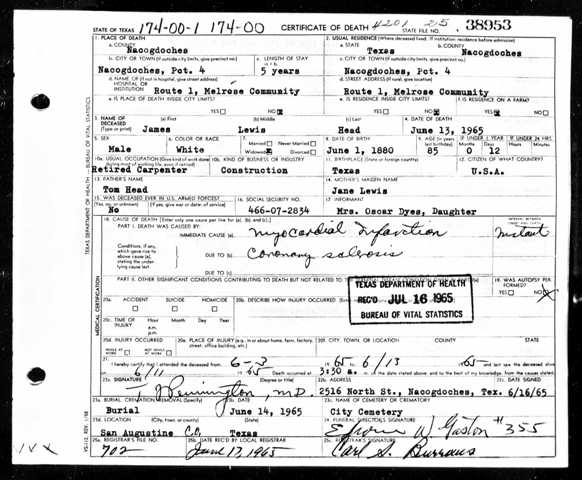 STATE OF TEXAS 174-00-1 174-00 CERTIFICATE OF DEATH 4201 25 STATE FILE NO. 38953
1. PLACE OF DEATH 2. USUAL RESIDENCE (Where deceased lived. If institution: residence before admission)
a. COUNTY Nacogdoches a. STATE Texas b. COUNTY Nacogdoches
b. CITY OR TOWN (If outside city limits, give precinct no.) c. LENGTH OF STAY c. CITY OR TOWN (If outside city limits, give precinct no.)
Nacogdoches, Pct. 4 5 years Nacogdoches, Pct. 4
d. NAME OF (If not in hospital, give street address) HOSPITAL OR INSTITUTION d. STREET ADDRESS (If rural, give location)
Route 1, Melrose Community Route 1, Melrose Community
e. IS PLACE OF DEATH INSIDE CITY LIMITS? e. IS RESIDENCE INSIDE CITY LIMITS? f. IS RESIDENCE ON A FARM?
YES NO YES NO YES NO
3. NAME OF DECEASED (Type or print) (a) First (b) Middle (c) Last 4. DATE OF DEATH
James Lewis Head June 13, 1965
5. SEX 6. COLOR OR RACE 7. Married Never Married Widowed Divorced 8. DATE OF BIRTH 9. AGE IF UNDER 1 YEAR IF UNDER 24 HRS.
Male White June 1, 1880 85 0 12
10a. USUAL OCCUPATION (Give kind of work done 10b. KIND OF BUSINESS OR INDUSTRY 11. BIRTHPLACE (State or foreign country) 12. CITIZEN OF WHAT COUNTRY?
Retired Carpenter Construction Texas U.S.A.
13. FATHER'S NAME 14. MOTHER'S MAIDEN NAME
Tom Head Jane Lewis
15. WAS DECEASED EVER IN U.S. ARMED FORCES? 16. SOCIAL SECURITY NO. 17. INFORMANT
No 466-07-2834 Mrs. Oscar Dyes, Daughter
18. CAUSE OF DEATH (Enter only one cause per line for (a), (b), and (c).)
PART I. DEATH WAS CAUSED BY:
IMMEDIATE CAUSE (a) Myocardial Infarction Instant
Conditions, if any, which gave rise to above cause (a), stating the underlying cause last.
DUE TO (b) Coronary sclerosis
DUE TO (c)
PART II. OTHER SIGNIFICANT CONDITIONS CONTRIBUTING TO DEATH BUT NOT RELATED TO 19. WAS AUTOPSY PERFORMED? YES NO
TEXAS DEPARTMENT OF HEALTH
REC'D JUL 16 1965
BUREAU OF VITAL STATISTICS
20a. ACCIDENT SUICIDE HOMICIDE 20b. DESCRIBE HOW INJURY OCCURRED.
20c. TIME OF INJURY Hour Month Day Year a.m. p.m.
20d. INJURY OCCURRED WHILE AT WORK NOT WHILE AT WORK 20e. PLACE OF INJURY (e.g. in or about home, farm, factory, street, office building, etc.) 20f. CITY, TOWN, OR LOCATION COUNTY STATE
21. I hereby certify that I attended the deceased from 6-3 1965 to 6/13 1965 and last saw the deceased alive
6/11 1965 Death occurred at 3:30 a. m. on the date stated above, and to the best of my knowledge, from the causes stated.
22a. SIGNATURE (Degree or title) 22b. ADDRESS 22c. DATE SIGNED
Pennington, M.D. 2516 North St., Nacogdoches, Tex. 6/16/65
23a. BURIAL, CREMATION, REMOVAL (Specify) 23b. DATE 23c. NAME OF CEMETERY OR CREMATORY
Burial June 14, 1965 City Cemetery
23d. LOCATION (City, town, or county) (State) 24. FUNERAL DIRECTOR'S SIGNATURE
San Augustine Texas W Gaston #355
25a. REGISTRAR'S FILE NO. 25b. DATE REC'D BY LOCAL REGISTRAR 25c. REGISTRAR'S SIGNATURE
702 June 17, 1965 Carl S. Burrows
TEXAS DEPARTMENT OF HEALTH - BUREAU OF VITAL STATISTICS
MEDICAL CERTIFICATION